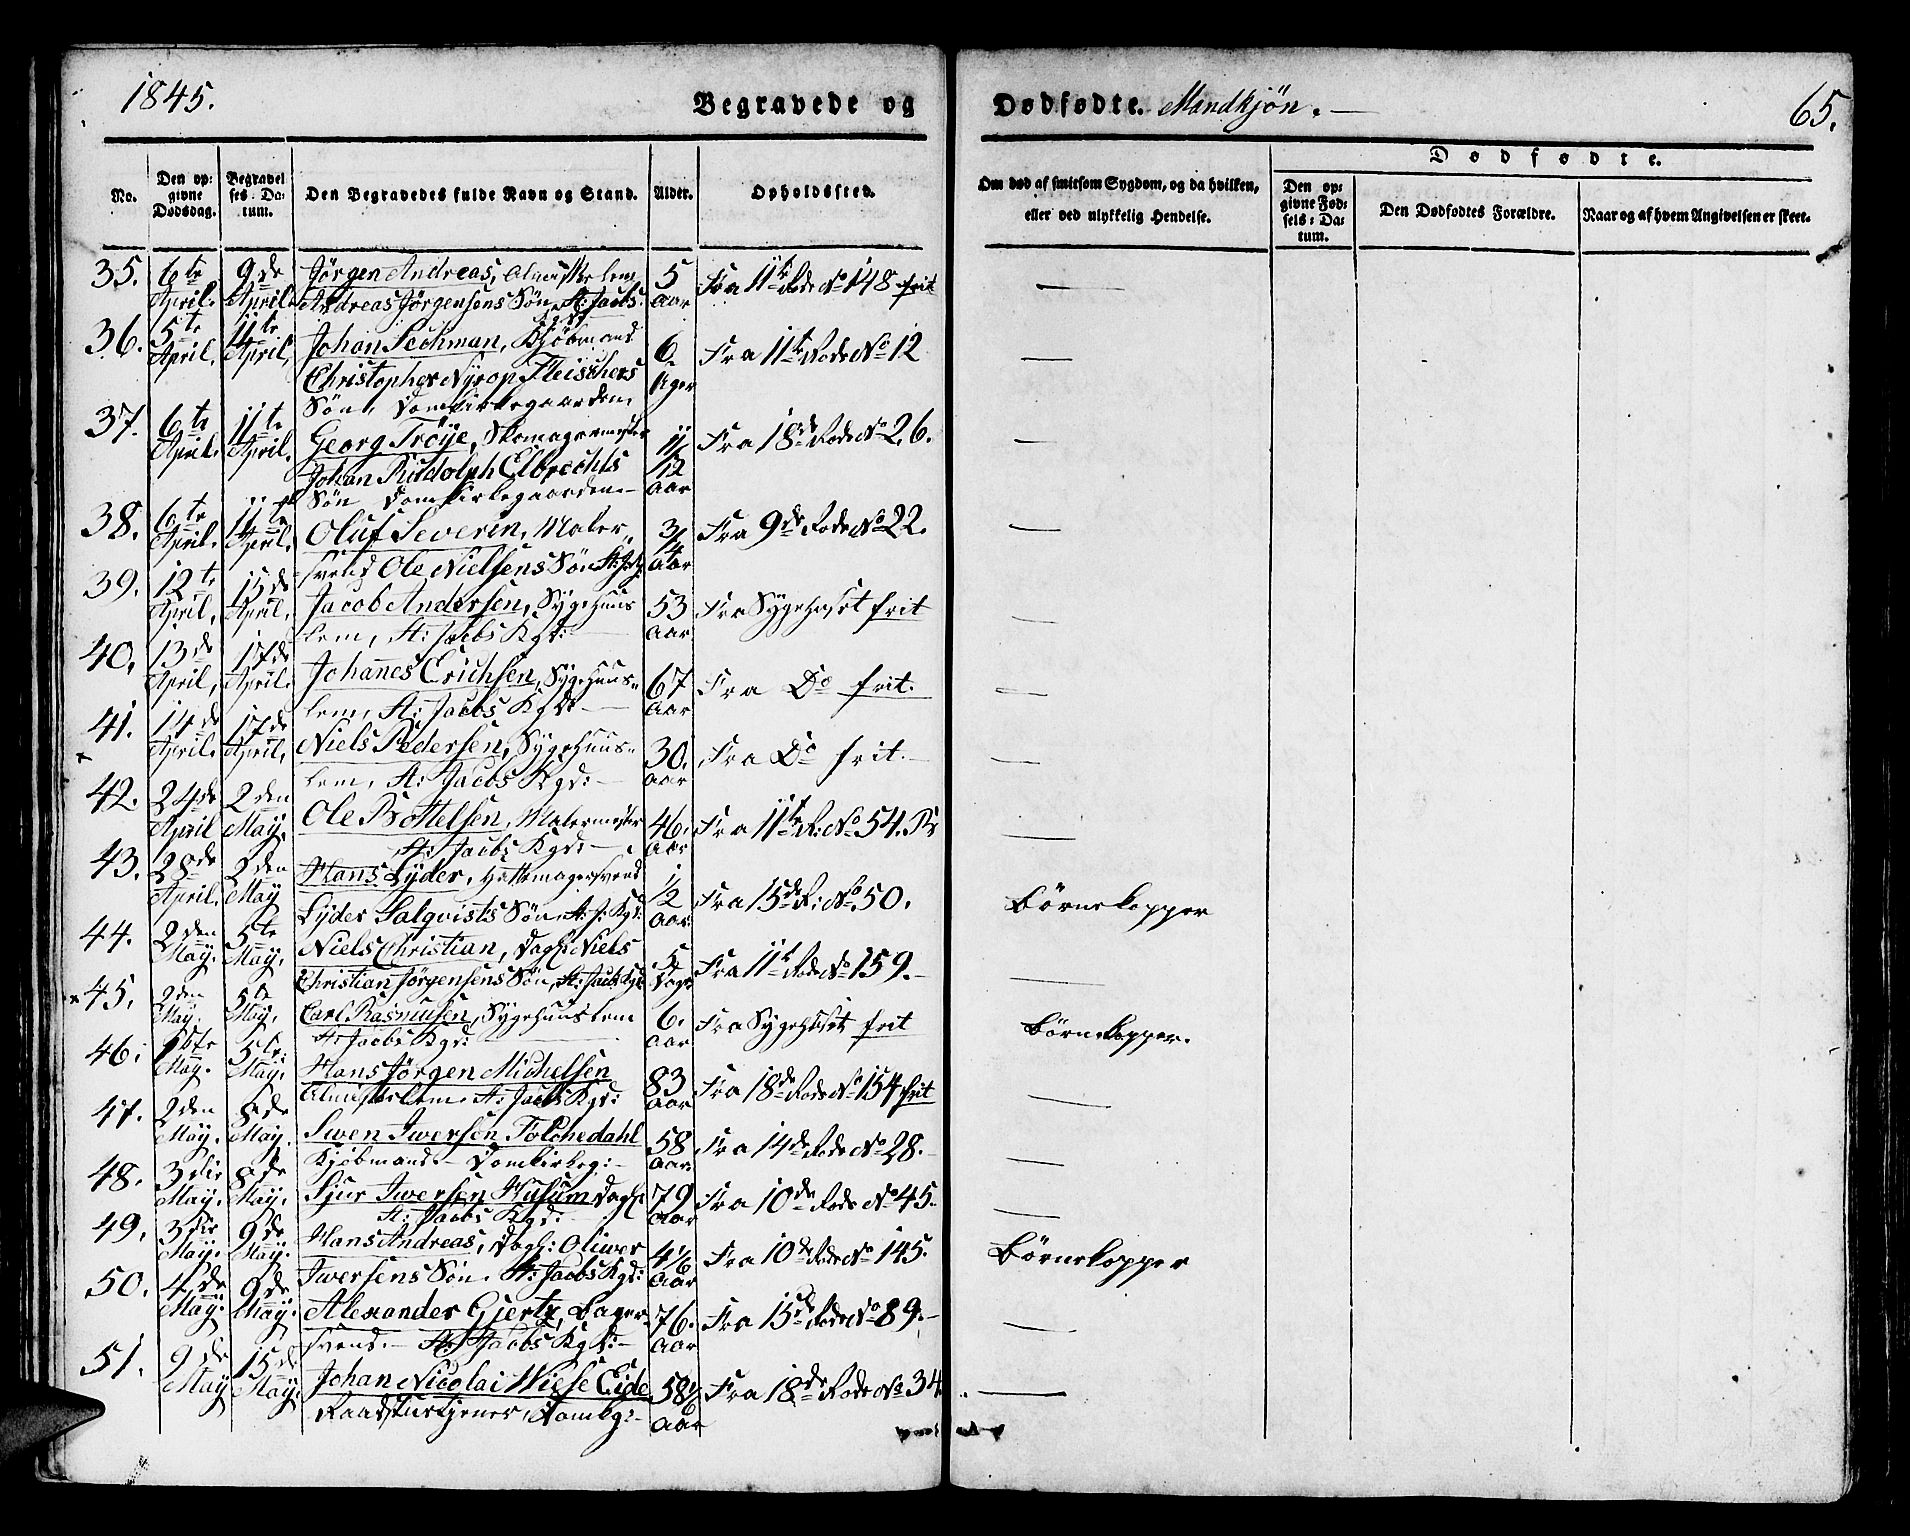 1845.
Begravede og Dødfødte. Mandkjøn.
65.
No.
Den opgivne Dødsdag.
Begravelses-Datum.
Den Begravedes fulde Navn og Stand.
Alder.
Opholdssted.
Om død af smitsom Sygdom, og da hvilken, eller ved ulykkelig Hendelse.
Dødfødte.
Den opgivne Fødsels-Datum.
Den Dødfødtes Forældre.
Naar og af hvem Angivelsen er skeet.
35. 6te April. 9de April. Jörgen Andreas, Almisselem Andreas Jörgensens Søn St: Jacobs 5 Aar Fra 11te Rode No 148 frit
36. 5te April. 11te April, Johan Sechman, Kjøbmand Christopher Nyrop Fleischers Søn, Domkirkegaarden, 6. Uger Fra 11te Rode No 12
37. 6te April. 11te April. Georg Tröije, Skomagermester Johan Rudolph Elbrechts Søn Domkirkegaarden 11/12 Aar Fra 18de Rode No 26.
38. 6te April. 11te April. Oluf Severin, Malersvend Ole Nielsens Søn St: J: 3/4 Aar Fra 9de Rode No 22.
39. 12te April, 15de April, Jacob Andersen, Sygehuuslem, St: Jacobs Kgd: 53 Aar Fra Sygehuset frit
40. 13de April, 17de April. Johannes Erichsen, Sygehuuslem, St: Jacobs Kgd: 67 Aar Fra Do frit.
41. 14de April. 17de April. Niels Pedersen, Sygehuuslem, St: Jacobs Kgd: 30. Aar Fra Do frit.
42. 24de April 2den May. Ole Bottelsen, Malermester St: Jacobs Kgd: 46. Aar Fra 11te R: No 54.
43. 28de April. 2den May Hans Lyder, Hattemagersvend Lyder Salqvists Søn, St: J: Kgd: 1/2 Aar Fra 15de R: No 50. Børnekopper
44. 2den May. 5te May. Niels Christian, Dagl: Niels Christian Jörgensens Søn, St: Jacobs Kgd: 5 Dage Fra 11te Rode No 159.
45. 2den May. 5te May. Carl Rasmusen, Sygehuuslem St: Jacobs Kgd: 6. Aar Fra Sygehuset frit Børnekopper.
46. 1ste May. 5te May. Hans Jörgen Michelsen Almisselem St: Jacobs Kgd: 83 Aar Fra 18de Rode No 154 frit
47. 2den May. 8de May. Swen Iwersen Tolchedahl Kjøbmand. Domkirkeg: 58 Aar. Fra 14de Rode No 28.
48. 3die May. 8de May. Sjur Iwersen Husum Dagl: St: Jacobs Kgd: 79 Aar Fra 10de Rode No 45.
49. 3die May. 9de May. Hans Andreas, Dagl: Oliwer Iwersens Søn. St: Jacobs Kgd: 4 1/6 Aar Fra 10de Rode No 145. Børnekopper
50. 4de May. 9de May. Alexander Gjertz, Bagersvend. St: Jacobs Kgd: 76. Aar Fra 15de Rode No 89.
51. 9de May 15de May. Johan Nicolai Wiese Eide Raadstuetjener, Dombg: 58 1/6 Aar Fra 18de Rode No 34